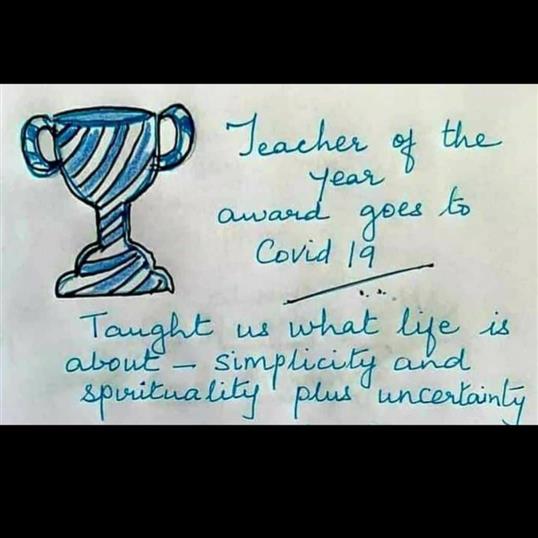 Teacher of the
year
award goes to
Covid 19
Taught us what life is
about – simplicity and
spirituality plus uncertainty